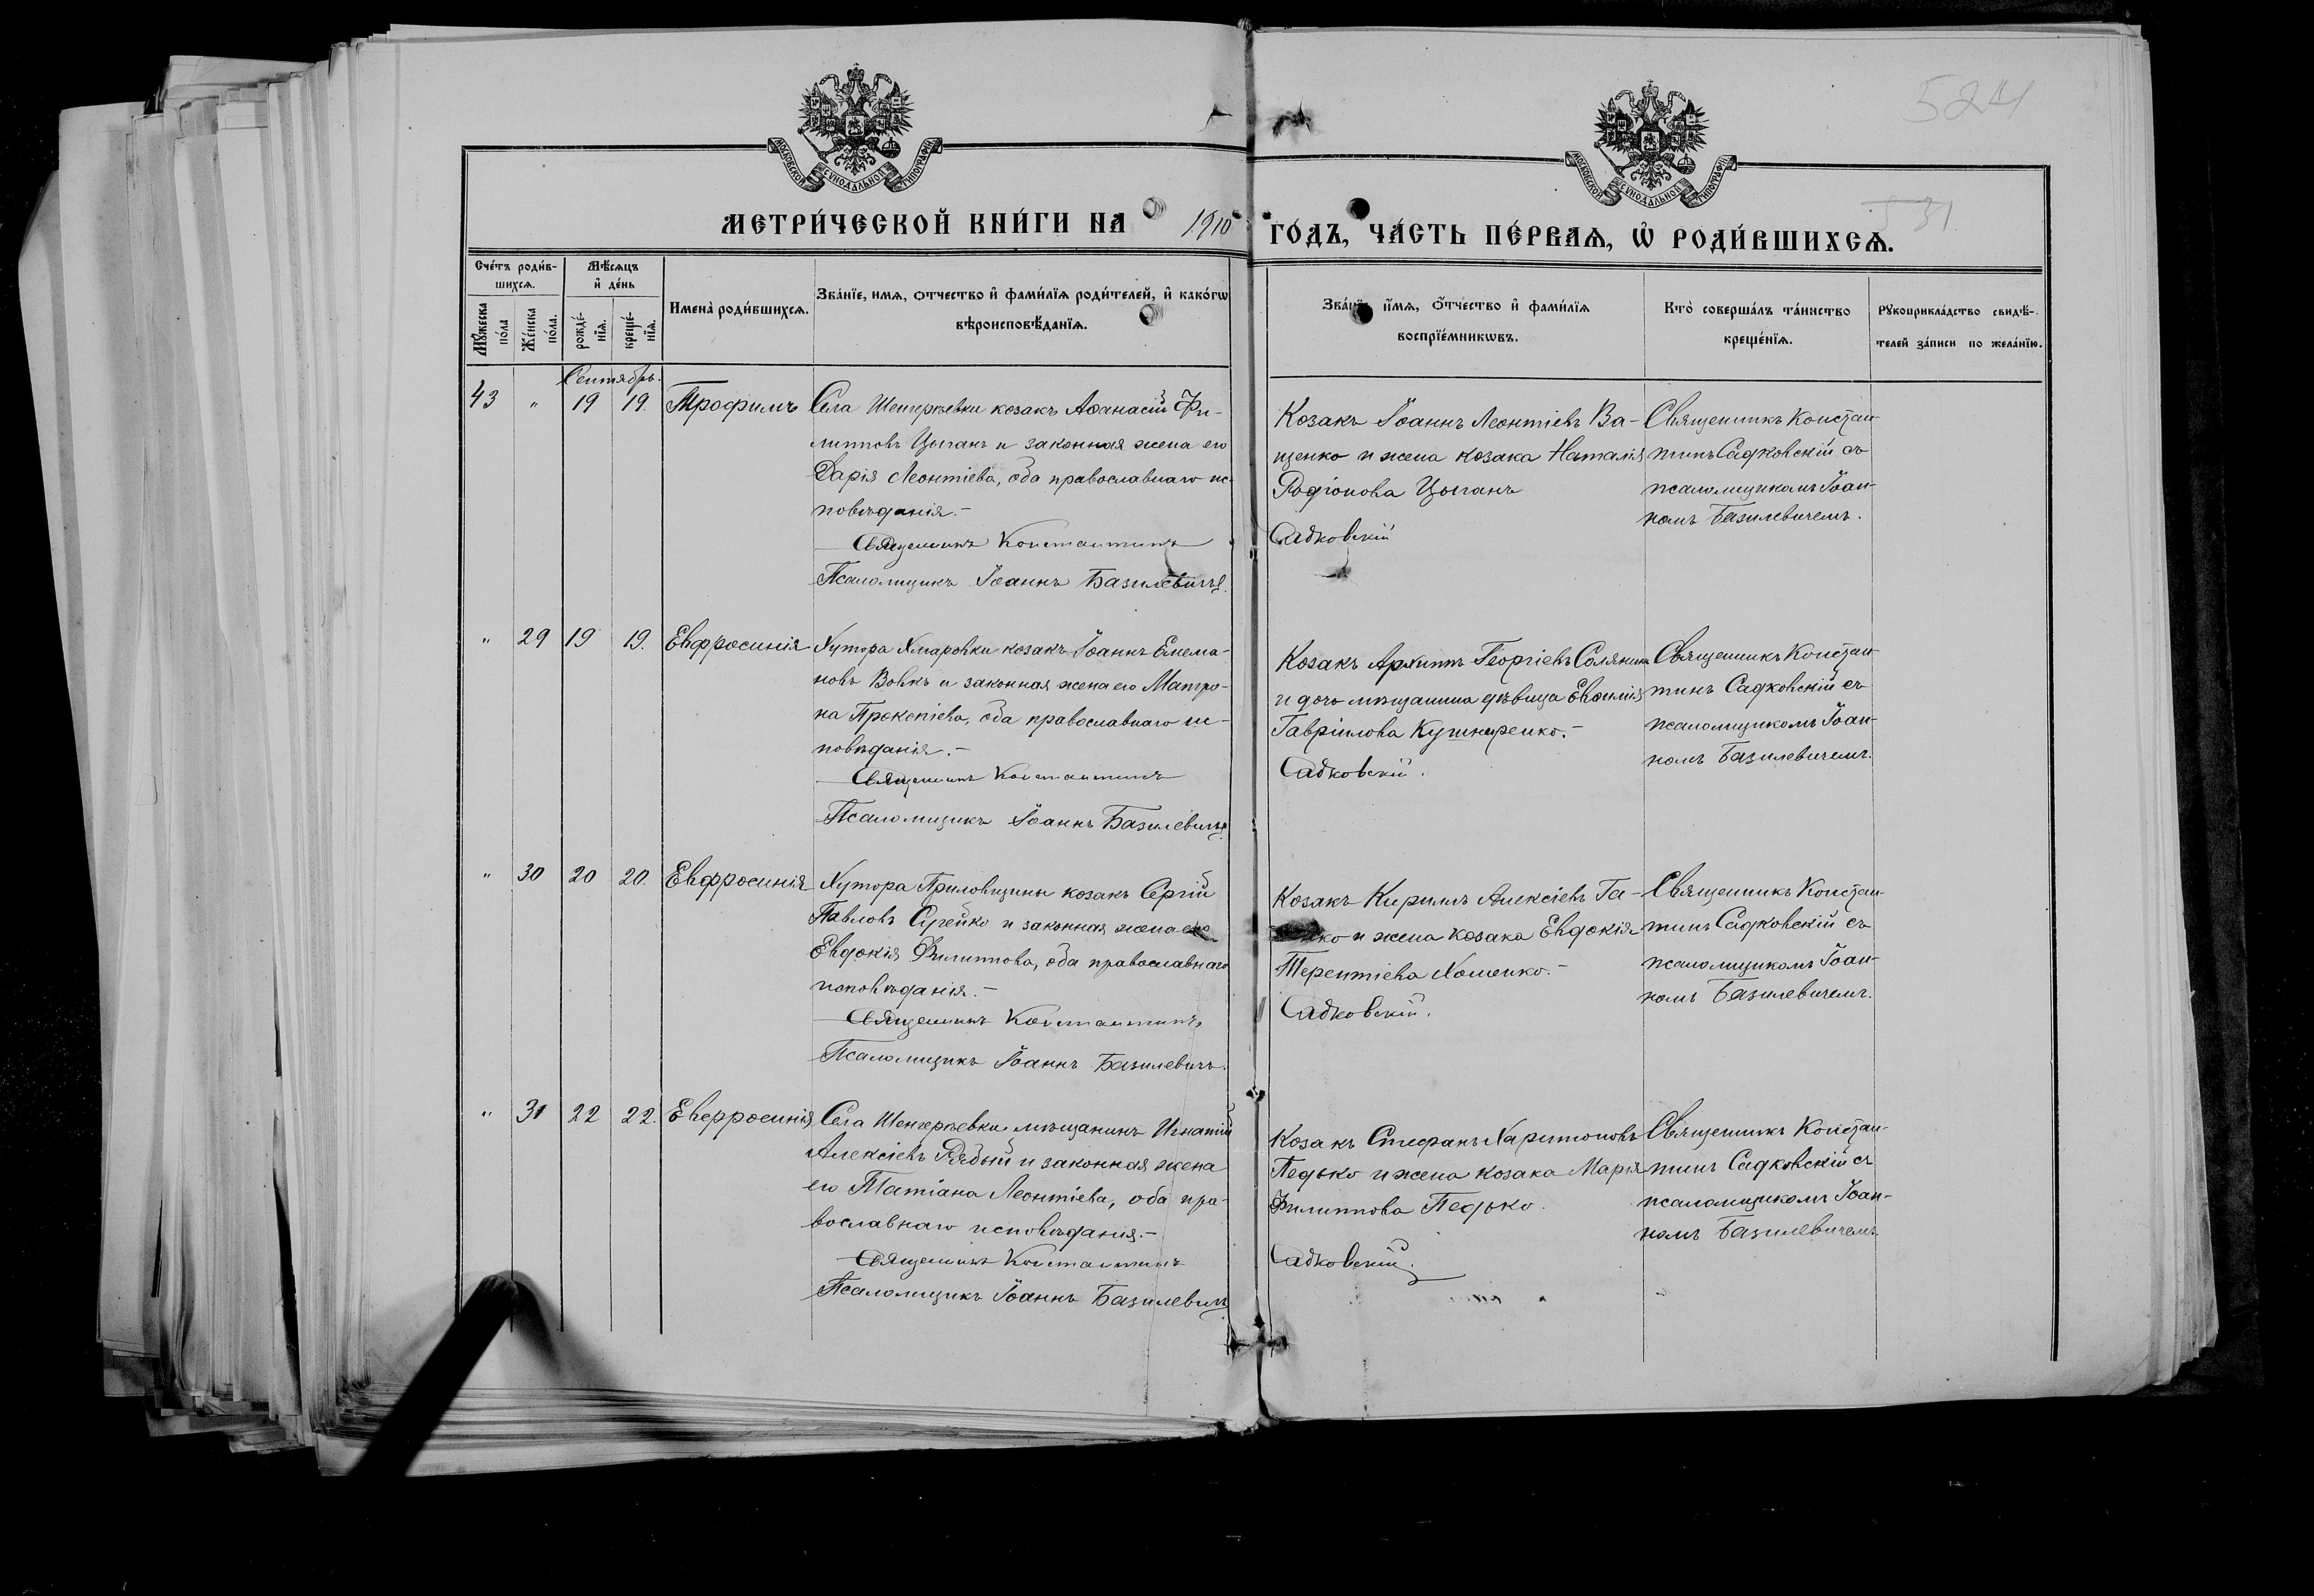 524
531
МОСКОВСКОЙ СѴНОДАЛЬНОЙ ТИПОГРАФІИ
МОСКОВСКОЙ СѴНОДАЛЬНОЙ ТИПОГРАФІИ
МЕТРИ́ЧЕСКОЙ КНИ́ГИ НА 1910 ГО́ДЪ, ЧА́СТЬ ПЕ́РВАѦ, Ѡ҆ РОДИ́ВШИХСѦ.
Сче́тъ роди́в-
шихсѧ.
Мꙋ́жеска
по́ла
Же́нска
по́ла.
Мѣ́сѧцъ
и҆ де́нь
рожде́-
нїѧ.
креще́-
нїѧ.
Имена̀ роди́вшихсѧ.
Зва́нїе, имѧ, ѻтчество и҆ фами́лїѧ роди́телей, и҆ како́гѡ
вѣроисповѣ́данїѧ.
Зва́нїе, и҆́мѧ, ѻ҆́тчество и҆ фами́лїѧ
воспрїе́мникѡвъ.
Кто̀ соверша́лъ та́инство
креще́нїѧ.
Рꙋкоприкла́дство свидѣ́-
телей за́писи по жела́нїю.
Сентябрь.
43 " 19 19. Трофимъ
Села Шенгерѣевки козакъ Аѳанасій Фи-
липповъ Цыганъ и законная жена его
Дарія Леонтіева, оба православнаго ис-
повѣданія.-
Священникъ Константинъ
Псаломщикъ Іоаннъ Базилевичъ.
Козакъ Іоаннъ Леонтіевъ Ва-
щенко и жена козака Наталія
Родіонова Цыганъ
Садковскій
Священникъ Констан-
тинъ Садковскій съ
псаломщикомъ Іоан-
номъ Базилевичемъ.
" 29 19 19. Евфросинія
Хутора Хмаровки козакъ Іоаннъ
новъ Вовкъ и законная жена его Матро-
на Прокопіева, оба православнаго ис-
повѣданія.-
Священникъ Константинъ
Псаломщикъ Іоаннъ Базилевичъ.
Козакъ Архипъ Георгіевъ
и дочь мѣщанина дѣвица Евѳимія
Гавріилова Кушниренко.-
Садковскій.
Священникъ Констан-
тинъ Садковскій съ
псаломщикомъ Іоан-
номъ Базилевичемъ.
" 30 20 20. Евфросинія
Хутора Приловщины козакъ Сергій
Павловъ и законная жена его
Евдокія Филиппова, оба православнаго
исповѣданія.-
Священникъ Константинъ
Псаломщикъ Іоаннъ Базилевичъ.
Козакъ Кириллъ Алексіевъ Га-
и жена козака Евдокія
Терентіева Хоменко.-
Садковскій.
Священникъ Констан-
тинъ Садковскій съ
псаломщикомъ Іоан-
номъ Базилевичемъ.
" 31 22 22. Евфросинія
Села Шенгерѣевки мѣщанинъ Игнатій
Алексіевъ Рябый и законная жена
его Татіана Леонтіева, оба пра-
вославнаго исповѣданія.-
Священникъ Константинъ
Псаломщикъ Іоаннъ Базилевичъ
Козакъ Стефанъ Харитоновъ
Педько и жена козака Марія
Филиппова Педько.
Садковскій.
Священникъ Констан-
тинъ Садковскій съ
псаломщикомъ Іоан-
номъ Базилевичемъ.